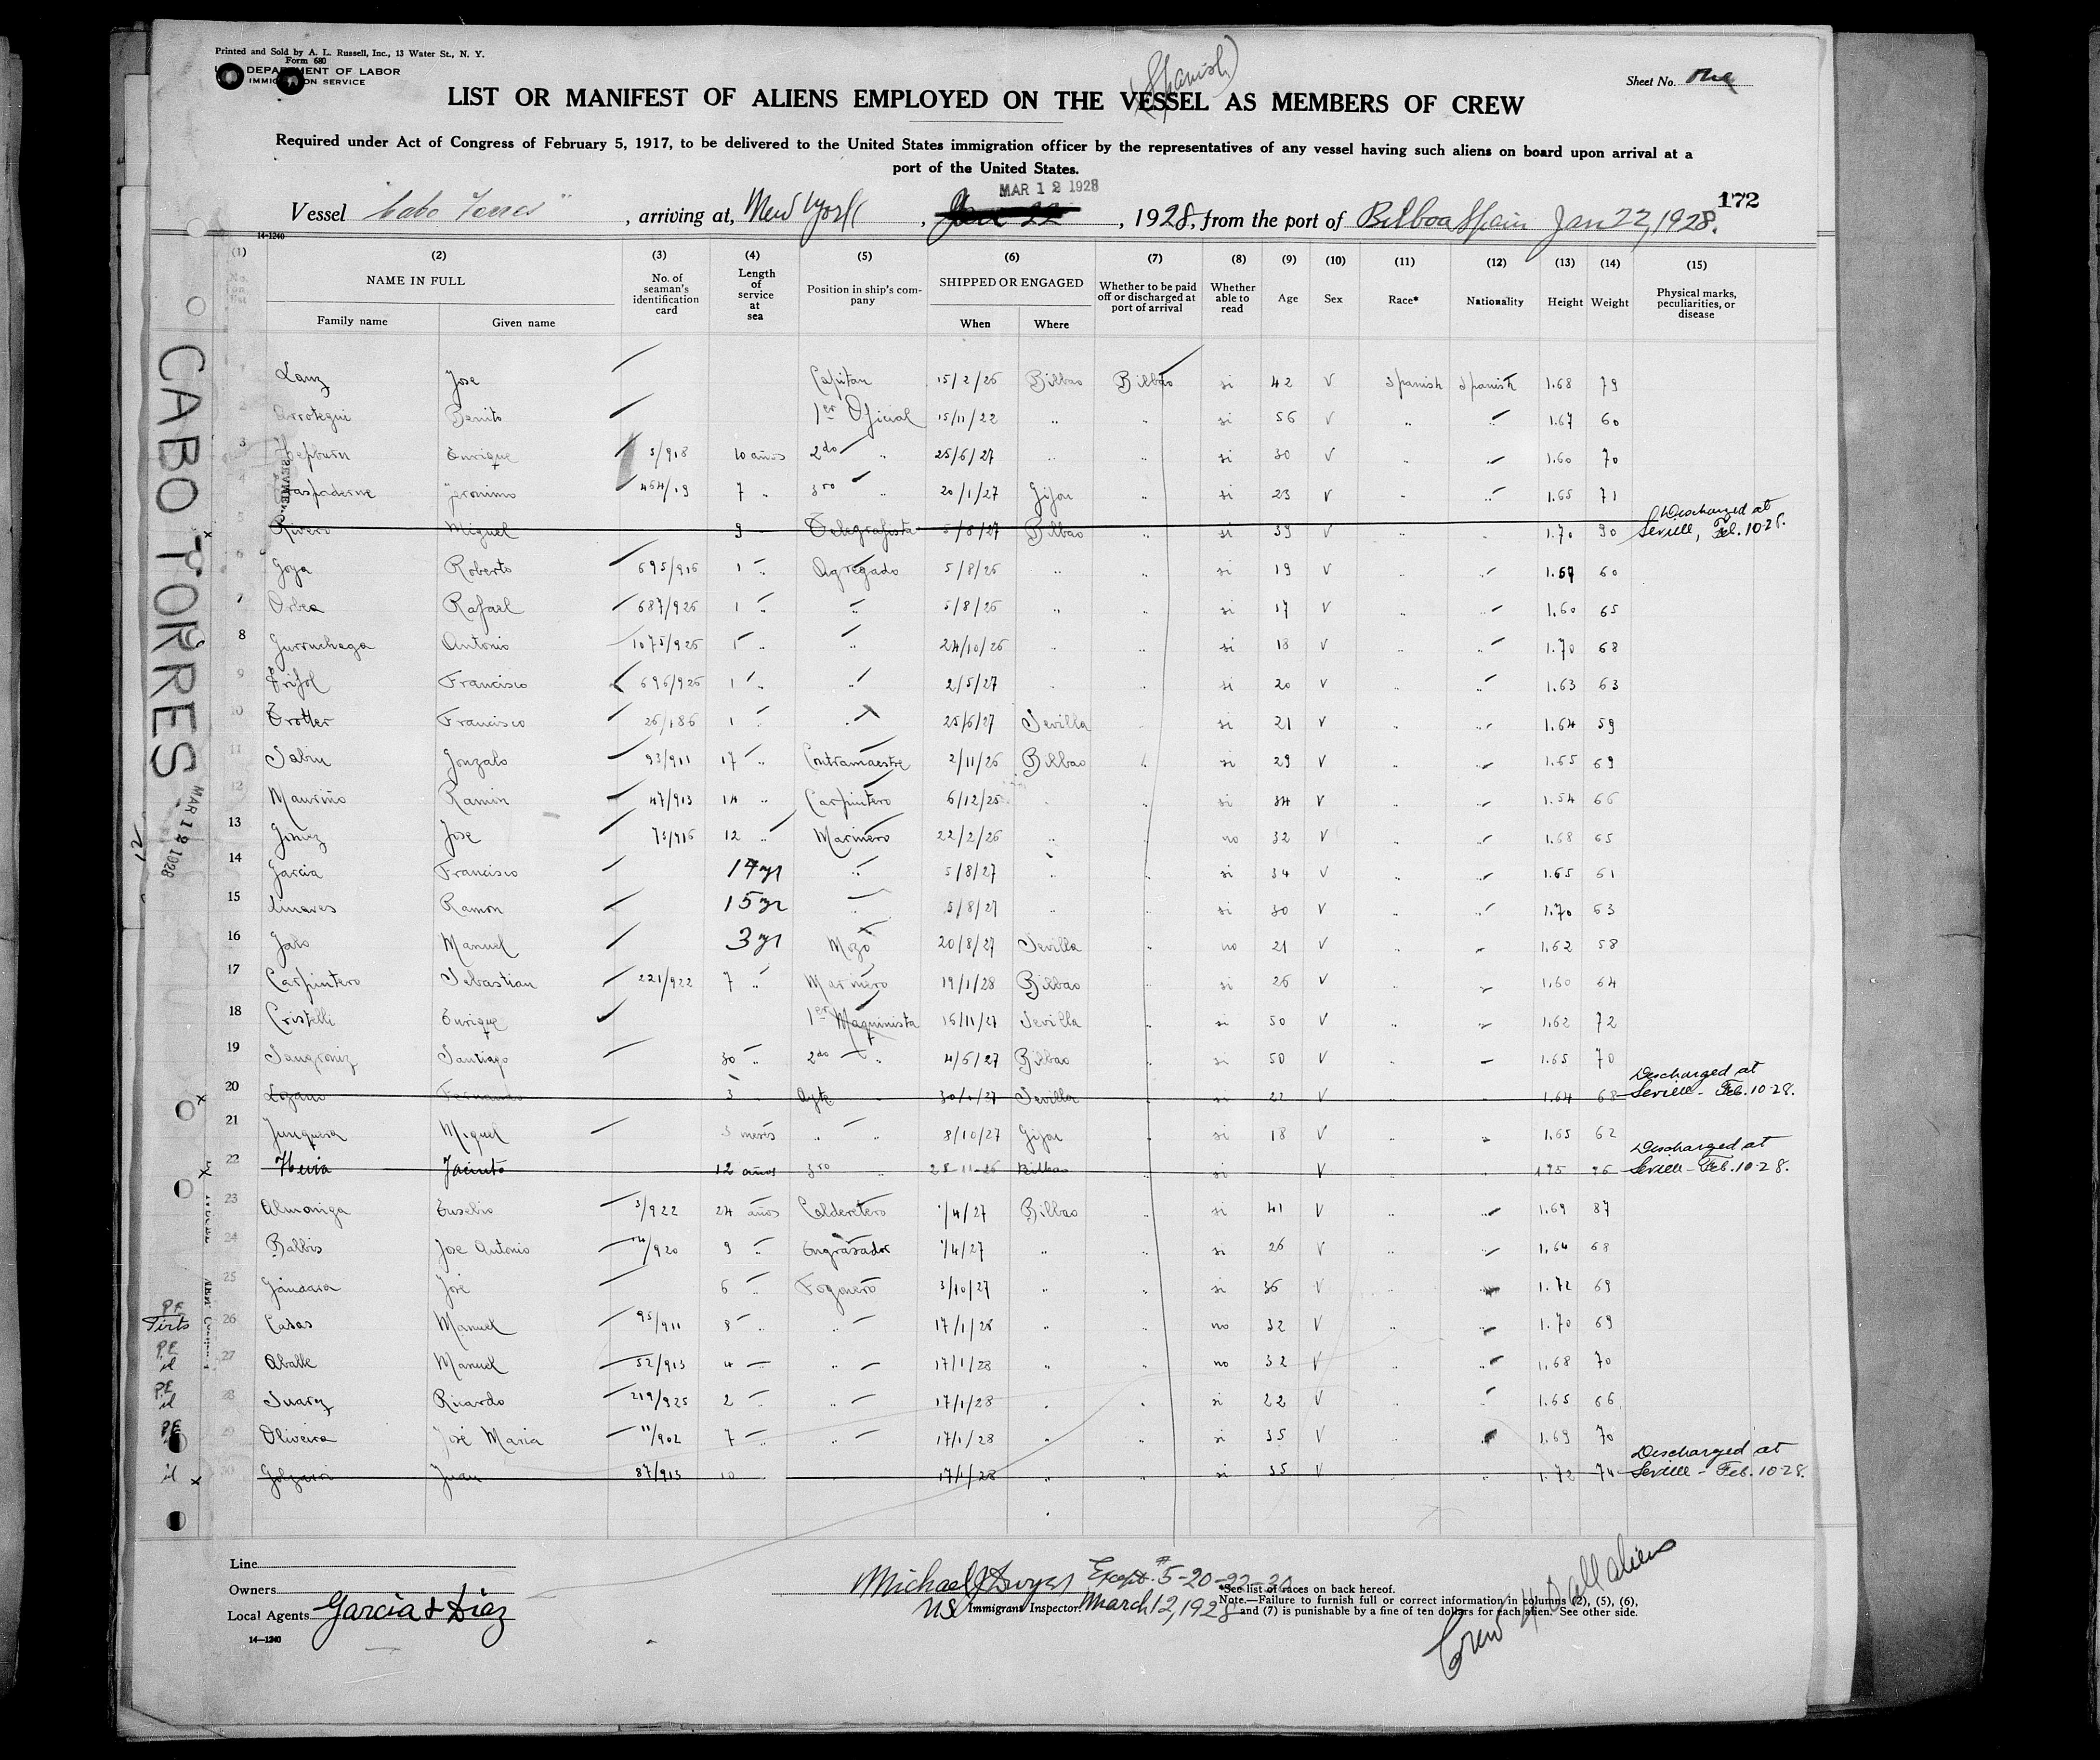 Printed and Sold by A. L. Russell, Inc., 13 Water St., N. Y.
Form 680
DEPARTMENT OF LABOR
IMMIGRATION SERVICE
(Spanish)
Sheet No. One
LIST OR MANIFEST OF ALIENS EMPLOYED ON THE VESSEL AS MEMBERS OF CREW
Required under Act of Congress of February 5, 1917, to be delivered to the United States immigration officer by the representatives of any vessel having such aliens on board upon arrival at a
port of the United States.
MAR 12 1928
172
Vessel "Cabo Torres", arriving at, New York, 1928, from the port of Bilboa Spain Jan 22, 1928.
14-1240
(1) (2) (3) (4) (5) (6) (7) (8) (9) (10) (11) (12) (13) (14) (15)
No. on list NAME IN FULL Family name Given name No. of seaman's identification card Length of service at sea Position in ship's company SHIPPED OR ENGAGED When Where Whether to be paid off or discharged at port of arrival Whether able to read Age Sex Race* Nationality Height Weight Physical marks, peculiarities, or disease
1 Lanz Jose Capitan 15/2/26 Bilbao Bilbao si 42 V Spanish Spanish 1.68 79
2 Arrotegui Benito 1er Oficial 15/11/22 .. .. si 56 V .. .. 1.67 60
3 Hepburn Enrique 5/918 10 años 2do .. 25/6/27 .. .. si 30 V .. .. 1.60 70
4 Jeronimo 464/19 7 .. 3ro .. 20/1/27 Gijon .. si 23 V .. .. 1.65 71
5 Rivero Miguel 9 Telegrafista 5/8/27 Bilbao .. si 39 V .. .. 1.70 90 Discharged at Seville, Feb. 10-28.
6 Goya Roberto 695/926 1 .. Agregado 5/8/26 .. .. si 19 V .. .. 1.67 60
7 Orbea Rafael 687/926 1 .. .. 5/8/26 .. .. si 17 V .. .. 1.60 65
8 Gurruchaga Antonio 1075/926 1 .. .. 24/10/26 .. .. si 18 V .. .. 1.70 68
9 Trifol Francisco 696/926 1 .. .. 2/5/27 .. .. si 20 V .. .. 1.63 63
10 Trotter Francisco 26/186 1 .. .. 25/6/27 Sevilla .. si 21 V .. .. 1.64 59
11 Sabin Gonzalo 93/911 17 .. Contramaestre 2/11/26 Bilbao .. si 29 V .. .. 1.65 69
12 Mauriño Ramon 47/913 14 .. Carpintero 6/12/25 .. .. si 34 V .. .. 1.54 66
13 Gomez Jose 75/916 12 .. Marinero 22/2/26 .. .. no 32 V .. .. 1.68 65
14 Garcia Francisco 17 yr .. 5/8/27 .. .. si 34 V .. .. 1.65 61
15 Linares Ramon 15 yr .. 5/8/27 .. .. si 30 V .. .. 1.70 63
16 Manuel 3 yr Mozo 20/8/27 Sevilla .. no 21 V .. .. 1.62 58
17 Carpintero Sebastian 221/922 7 .. Marinero 19/1/28 Bilbao .. si 26 V .. .. 1.60 64
18 Cristelli Enrique 1er Maquinista 16/11/27 Sevilla .. si 50 V .. .. 1.62 72
19 Sangroniz Santiago 30 .. 2do .. 4/6/27 Bilbao .. si 50 V .. .. 1.65 70
20 Lozano Fernando 3 Ayte Sevilla si 22 V 1.64 68 Discharged at Seville - Feb. 10-28.
21 Junquera Miquel 3 meses .. .. 8/10/27 Gijon .. si 18 V .. .. 1.65 62
22 Hevia Jacinto 12 años 3ro .. 28-11-26 Bilbao si V 195 96 Discharged at Seville - Feb. 10-28.
23 Almoniga Eusebio 3/922 24 años Calderetero 1/4/27 Bilbao .. si 41 V .. .. 1.69 87
24 Balbis Jose Antonio 9 .. Engrasador 1/4/27 .. .. si 26 V .. .. 1.64 68
25 Gándara José 6 .. Fogonero 3/10/27 .. .. si 36 V .. .. 1.72 69
26 Casas Manuel 95/911 8 .. .. 17/1/28 .. .. no 32 V .. .. 1.70 69
27 Aballe Manuel 52/913 4 .. .. 17/1/28 .. .. no 32 V .. .. 1.68 70
28 Suarez Ricardo 219/925 2 .. .. 17/1/28 .. .. si 22 V .. .. 1.65 66
29 Oliveira José Maria 11/902 7 .. .. 17/1/28 .. .. si 35 V .. .. 1.69 70
30 Juan 87/913 10 17/1/28 .. .. si 35 V .. .. 1.72 74 Discharged at Seville - Feb. 10-28.
CABO TORRES
MAR 12 1928
Line
Owners
Local Agents Garcia & Diaz
14-1240
Michael J Dwyer Except #5-20-22-30
US Immigrant Inspector. March 12, 1928
*See list of races on back hereof.
Note.—Failure to furnish full or correct information in columns (2), (5), (6),
and (7) is punishable by a fine of ten dollars for each alien. See other side.
Crew 40 all aliens